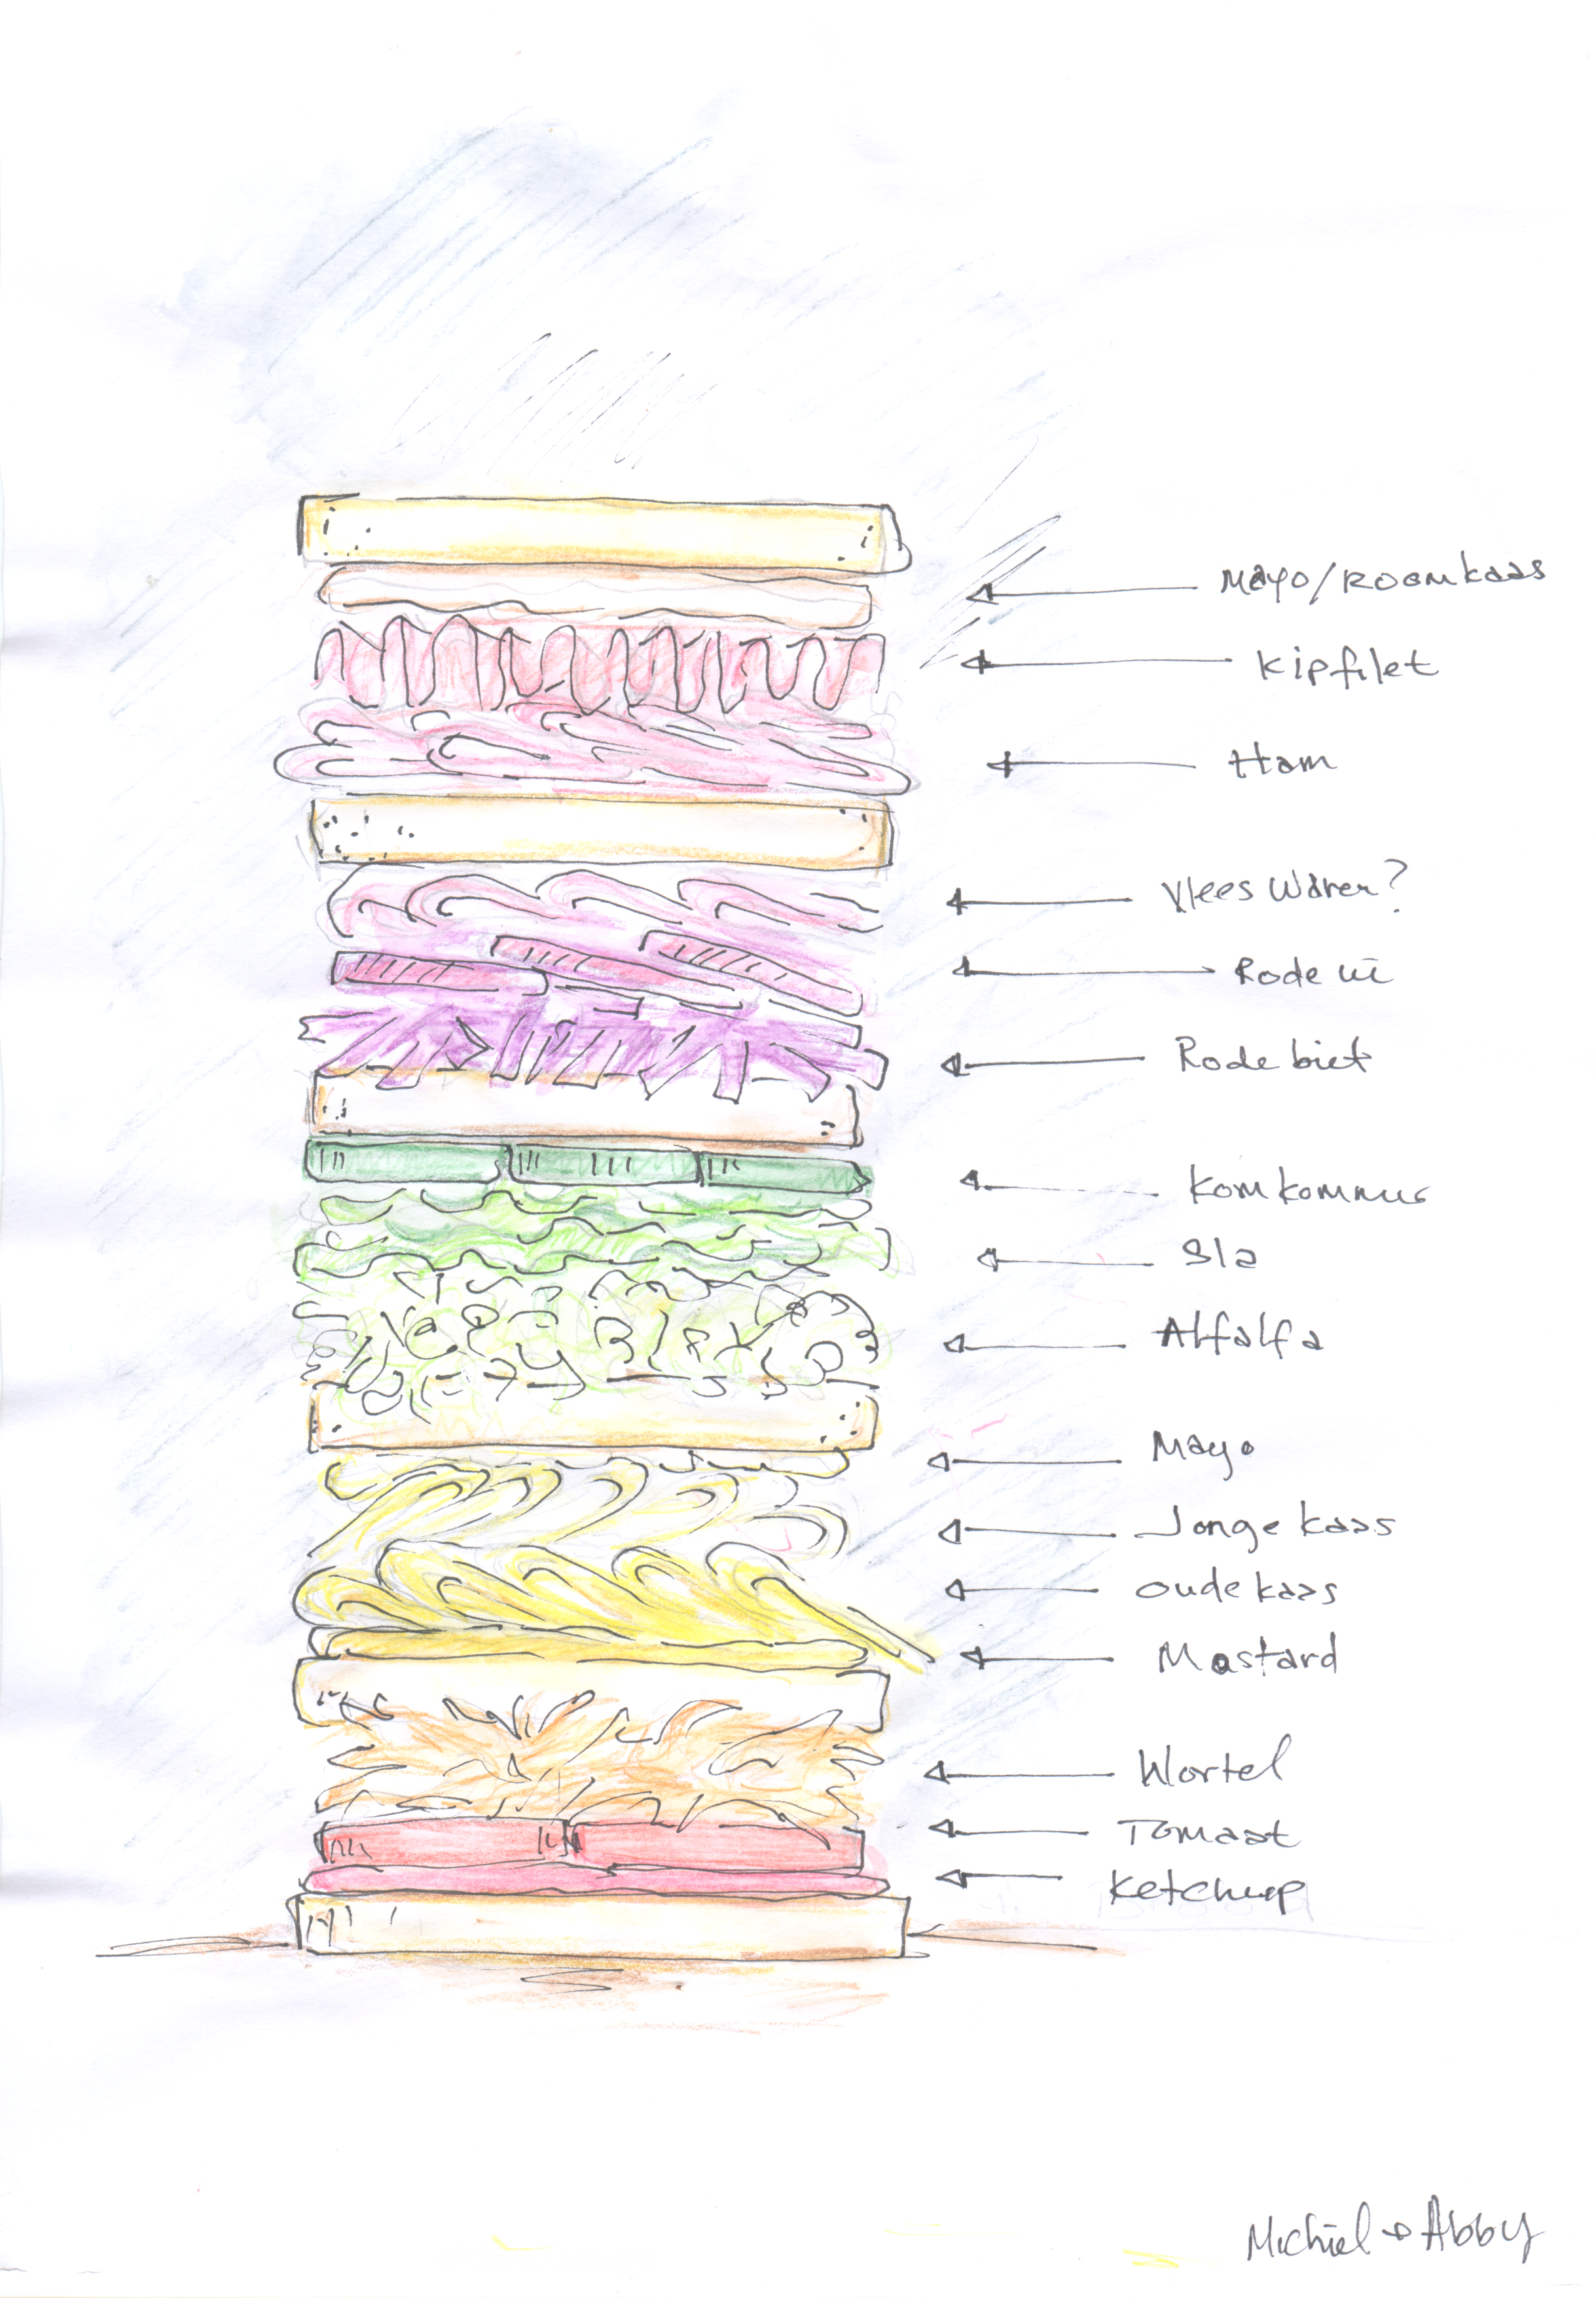 Mayo/Roomkaas
Kipfilet
Ham
Vlees waren?
Rode ui
Rode biet
Komkommer
Sla
Alfalfa
Mayo
Jonge kaas
oude kaas
Mostard
Wortel
Tomaat
Ketchup
Michiel + Abby